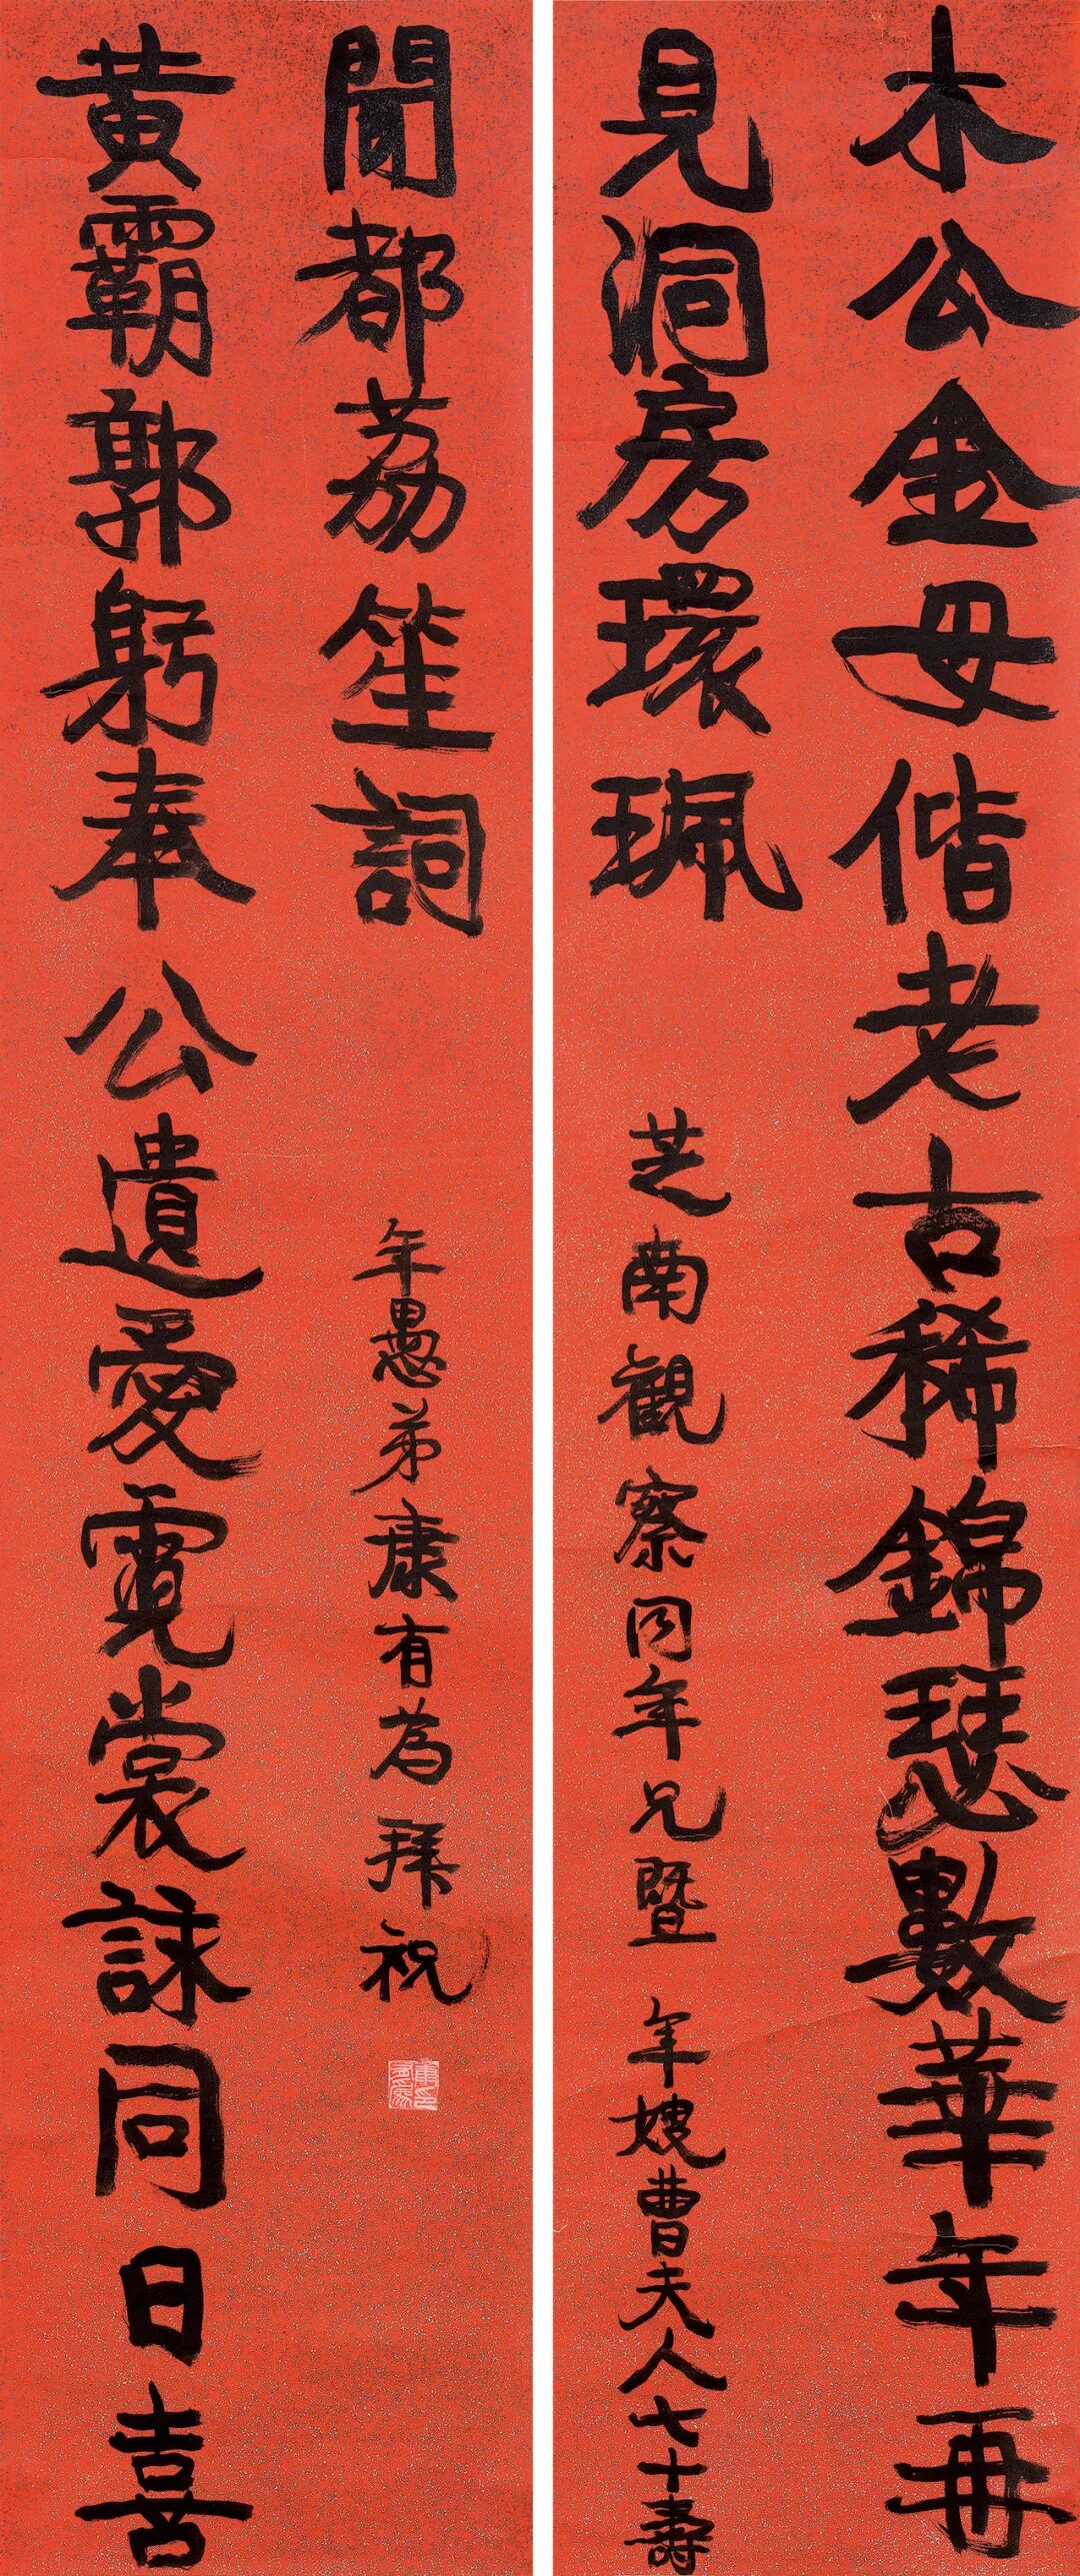 木公金母偕老古稀錦瑟數華年再
見洞房環珮
芝南觀察同年兄暨 年嫂曹夫人七十壽
黃霸郭躬奉公遺愛霓裳詠同日喜
聞都荔笙詞
年愚弟康有為拜祝
康有為印